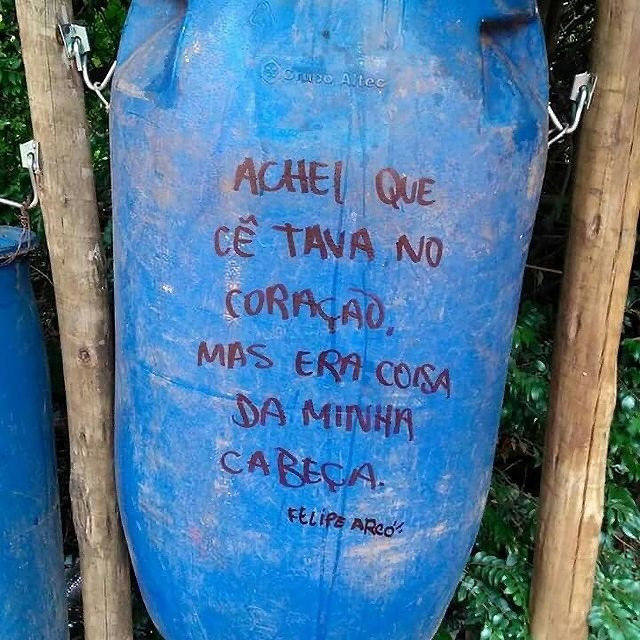 Grupo Altec
ACHEI QUE
CÊ TAVA NO
CORAÇÃO,
MAS ERA COISA
DA MINHA
CABEÇA.
FELIPE ARCO